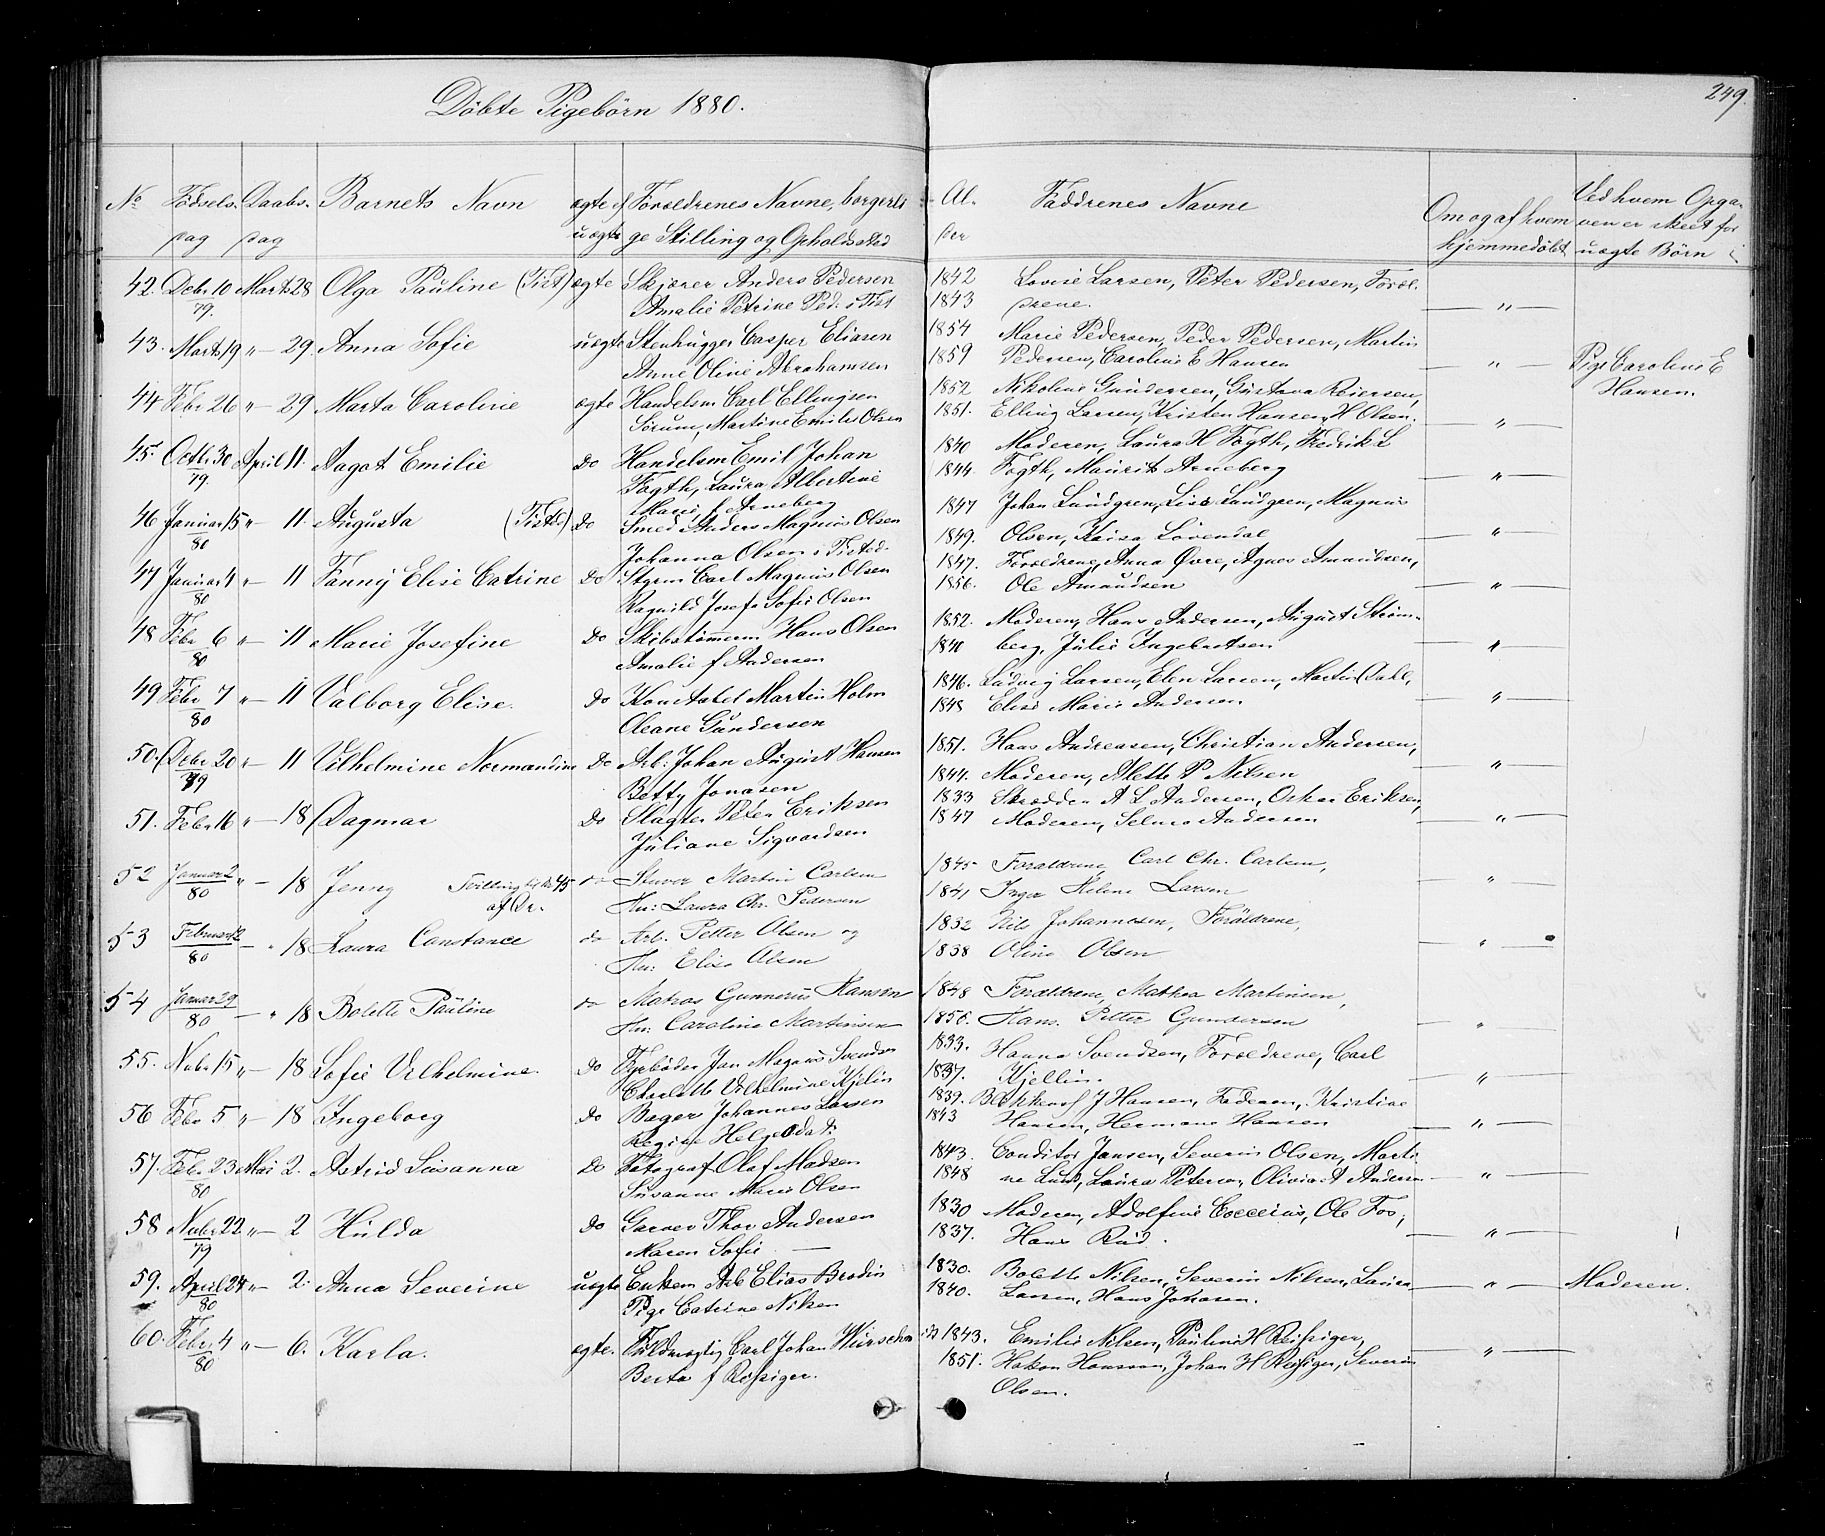 249.
Döbte Pigebörn 1880.
No Födsels- Daabs- Barnets Navn ægte el Forældrenes Navne, borgerli Al- Faddrenes Navne Om og af hvem Ved hvem Opga-
dag dag uægte ge Stilling og Opholdssted der hjemmedöbt ven er skeet for
uægte Börn
42. Debr 10 Marts 28 Olga Pauline (Tist) ægte Skjærer Anders Pedersen 1842 Lovise Larsen, Peter Pedersen, Foræl-
79. Amalie Petrine Ped: i Tist 1843 drene. — " —
43. Marts 19 " — 29. Anna Sofie uægte Stenhugger Casper Eliasen 1854 Marie Pedersen, Peder Pedersen, Martin
Anne Olive Abrahamsen 1859 Pedersen, Caroline E Hansen — " — Pige Caroline E
Hansen.
44 Febr 26 " — 29 Marta Caroline ægte Handelsm Carl Ellingsen 1852 Nikoline Gundersen, Gustava Reiersen,
Sörum, Martine Emilie Olsen 1851. Elling Larsen, Kristen Hansen, H Olsen. — " —
45. Octbr 30 April 11. Aagot Emilie Do Handelsm Emil Johan 1840 Moderen, Laura H Fogth, Fredrik L
79. Fogth, Laura Albertine 1844. Fogth, Maurits Arneberg — " —
Marie f Arneberg
46 Januar 15 " — 11. Augusta (Tisted) Do Smed Anders Magnus Olsen 1847 Johan Lundgren, Lise Lundgren, Magnus
80 Johanna Olsen i Tisted. 1849. Olsen, Kaisa Lövendal — " —
47 Januar 4 " — 11 Fanny Elise Catrine Do Styrm Carl Magnus Olsen 1847. Forældrene, Anna Øvre, Agnes Amundsen,
80 Ragnild Josefa Sofie Olsen 1856. Ole Amundsen — " —
48 Febr 6 " — 11 Marie Josefine Do Skibstömerm Hans Olsen 1852. Moderen, Hans Andersen, August Ström-
80 Amalie f Andersen 1840 berg, Julie Ingebretsen — " —
49 Febr 7 " — 11 Valborg Elise. Do Konstabel Martin Holm 1846. Ludvig Larsen, Elen Larsen, Martin Dahl,
80 Oleane Gundersen 1848 Elise Marie Andersen — " —
50. Debr 20 " — 11 Vilhelmine Normandine Do Arb: Johan August Hansen 1851. Hans Andreasen, Christian Andersen,
79 Betty Jonasen 1844. Moderen, Alette P Nilsen — " —
51. Febr 16 " — 18 Dagmar Do Slagter Peter Eriksen 1833 Skrædder A L Andersen, Oskar Eriksen,
Juliane Sigvardsen 1847 Moderen, Selma Andersen — " —
52 Januar 2 " — 18 Jenny Tvilling til No 45 do Stuver Martin Carlsen 1845 Forældrene, Carl Chr. Carlsen,
80 af Dr. Hu: Laura Chr. Pedersen 1841 Inger Helene Larsen "
53 Februar 12 — " 18 Laura Constance do Arb. Petter Olsen og 1832 Nils Johannesen, Forældrene,
80 Hu: Elise Olsen 1838 Oline Olsen — " —
54 Januar 29 — " 18 Bolette Pauline do Matros Gunnerus Hansen 1848 Forældrene, Mathea Martinsen,
80 Hu: Caroline Martinsen 1856. Hans Petter Gundersen — " —
55. Nvbr 15 " — 18 Sofie Vilhelmine. Do Fyrböder Jan Magnus Svendsen 1833. Hanna Svendsen, Forældrene, Carl
Charlotte Vilhelmine Kjelin 1837. Kjellin. — " —
56 Febr 5 " — 18 Ingeborg Do Bager Johannes Larsen 1839. J Hansen, Faderen, Kristine
Regine Helgesdat: 1843 Hansen, Hermane Hansen — " —
57. Febr 23 Mai 2. Astrid Susanna Do Fotograf Olaf Madsen 1843. Conditor Jansen, Severin Olsen, Marti
80 Susanne Marie Olsen 1848 ne Lund, Laura Petersen, Olivia A Andersen — " —
58 Nvbr 22 " — 2 Hulda Do Garver Thor Andersen 1830 Moderen, Adolfine Coccenius, Ole Fos,
79 Maren Sofie — 1837. Hans Rud. — " —
59. April 24 " — 2. Anna Severine uægte Enkem Arb Elias Brodin 1830. Bolette Nilsen, Severin Nilsen, Laura
80 Pige Catrine Nilsen 1840. Larsen, Hans Johasen. — " — Moderen.
60. Febr. 4 " — 6. Karla. ægte. Fuldmægtig Carl Johan Wirschn 1843. Emilie Nilsen, Pauline H Reissiger,
80 Berta f Reissiger. 1851. Hakon Hansson, Johan H Reissiger, Severin — " —
Olsen.